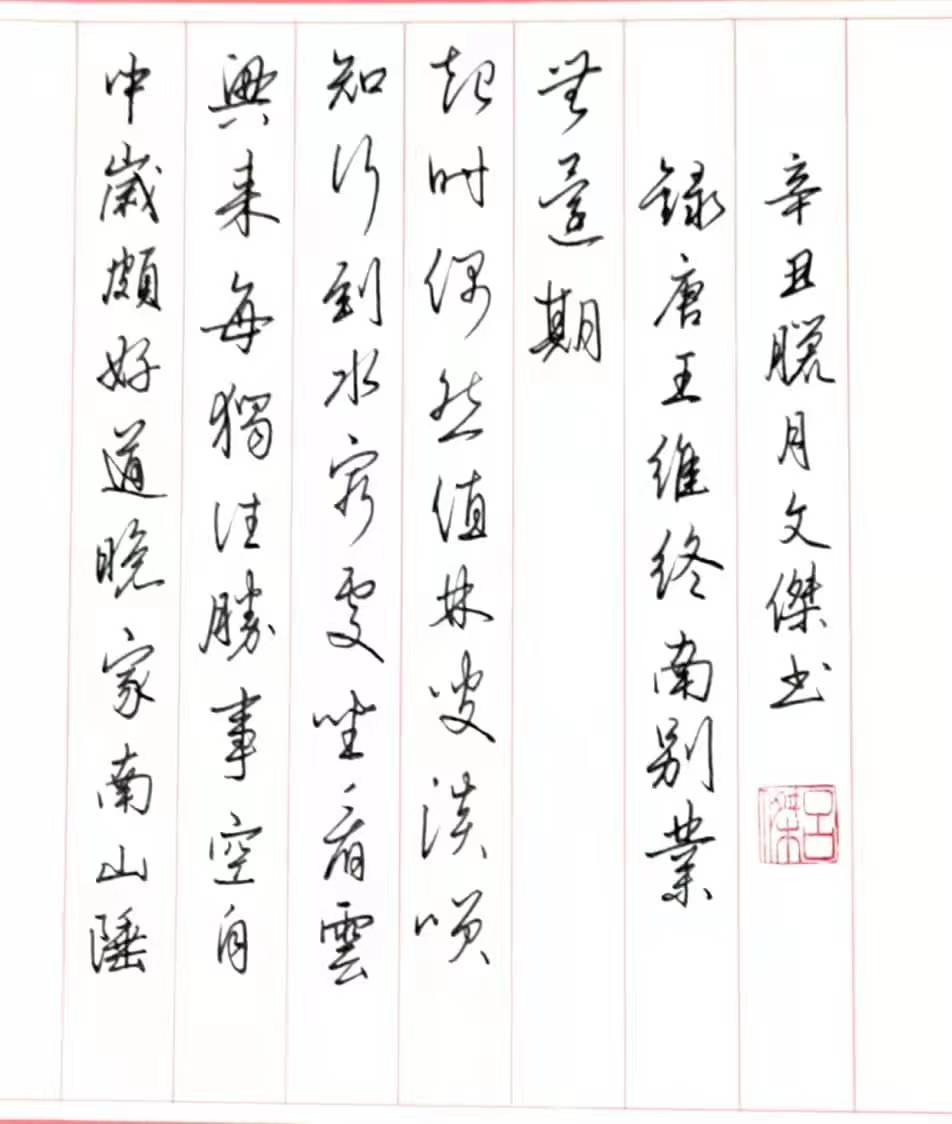 中歲頗好道晚家南山陲
興來每獨往勝事空自
知行到水窮處坐看雲
起時偶然值林叟談咲
無還期
錄唐王維終南別業
辛丑臘月文傑書
呂傑